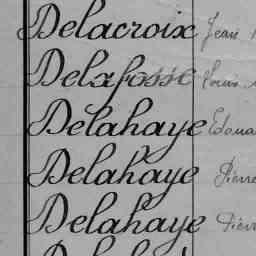 Delacroix Jean
Delafosse Louis
Delahaye Edoua
Delahaye Pierre
Delahaye Pierr